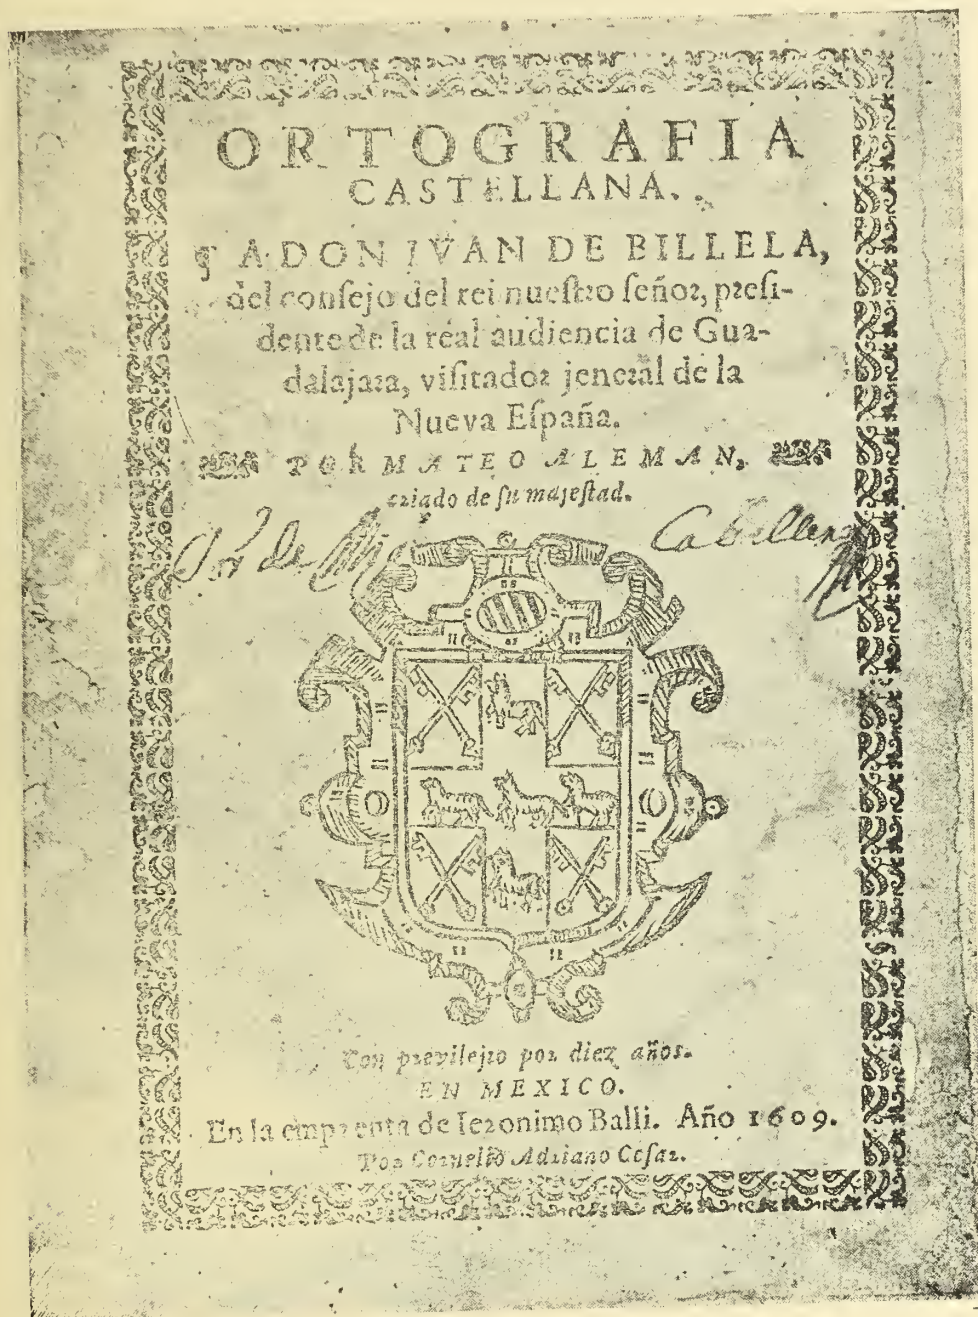 ORTOGRAFIA
CASTELLANA.
¶ A DON IVAN DE BILLELA,
del conſejo del rei nueſtꝛo ſeñoꝛ, pꝛeſi-
dente de la real audiencia de Gua-
dalajaꝛa, viſitadoꝛ jeneꝛal de la
Nueva Eſpaña.
POR MATEO ALEMAN,
cꝛiado de ſu majeſtad.
Con pꝛevilejio poꝛ diez años.
EN MEXICO.
En la empꝛenta de Ieꝛonimo Balli. Año 1609.
Poꝛ Coꝛnelio Adꝛiano Ceſaꝛ.